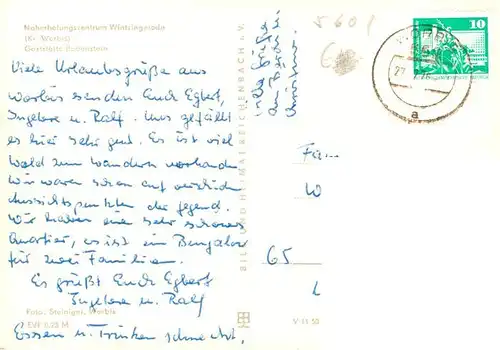 Naherholungszentrum Wintzingerode
(Kr. Worbis)
Gaststätte Bodenstein
Viele Urlaubsgrüße aus
Worbis senden Euch Egbert,
Ingelore u. Ralf. Uns gefällt
es hier sehr gut. Es ist viel
Wald zum Wandern vorhanden
Wir waren schon auf
Aussichtspunkten der Gegend.
Wir haben ein sehr schönes
Quartier, es ist ein Bungalow
für zwei Familien.
Es grüßt Euch Egbert
Ingelore u. Ralf
Foto: Steiniger, Worbis
EVP 0,20 M
Essen u. Trinken schmeckt,
BILD UND HEIMAT REICHENBACH i. V.
V 11 50
viele Grüße
an
5601
WORBIS
a
10
Fam
W
65
L